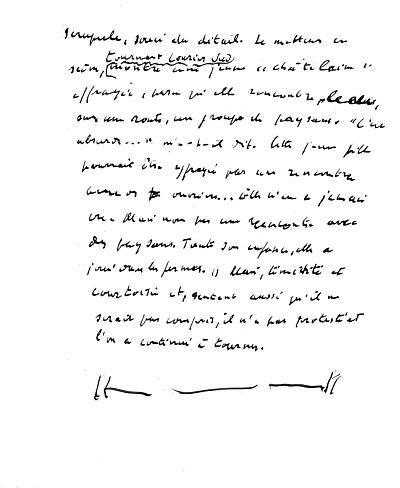 scrupule, souci du détail. Le metteur en
tournant Courrier Sud
scène, montre une jeune "châtelaine"
effrayée, parce qu'elle rencontre
sur une route, un groupe de paysans. "C'est
absurde..." m'a-t-il dit. Cette jeune fille
pourrait être effrayée par une rencontre
avec des ouvriers... elle n'en a jamais
vu. Mais non par une rencontre avec
des paysans. Toute son enfance, elle a
joué dans les fermes. Mais, timidité et
courtoisie et, sentant aussi qu'il ne
serait pas compris, il n'a pas protesté et
l'on a continué à tourner.